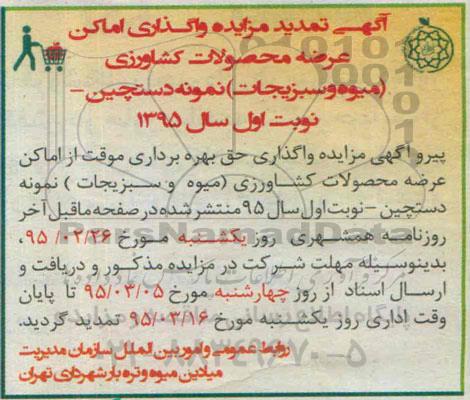 آگهی تمدید مزایده واگذاری اماکن
عرضه محصولات کشاورزی
(میوه و سبزیجات) نمونه دستچین –
نوبت اول سال ۱۳۹۵
پیرو آگهی مزایده واگذاری حق بهره برداری موقت از اماکن
عرضه محصولات کشاورزی (میوه و سبزیجات) نمونه
دستچین – نوبت اول سال ۹۵ منتشر شده در صفحه ماقبل آخر
روزنامه همشهری روز یکشنبه مورخ ۹۵/۰۲/۲۶،
بدینوسیله مهلت شرکت در مزایده مذکور و دریافت و
ارسال اسناد از روز چهارشنبه مورخ ۹۵/۰۳/۰۵ تا پایان
وقت اداری روز یکشنبه مورخ ۹۵/۰۳/۱۶ تمدید گردید.
روابط عمومی و امور بین الملل سازمان مدیریت
میادین میوه و تره بار شهرداری تهران
ParsNamadData
۰۲۱-۸۸۳۴۹۶۷۰-۵